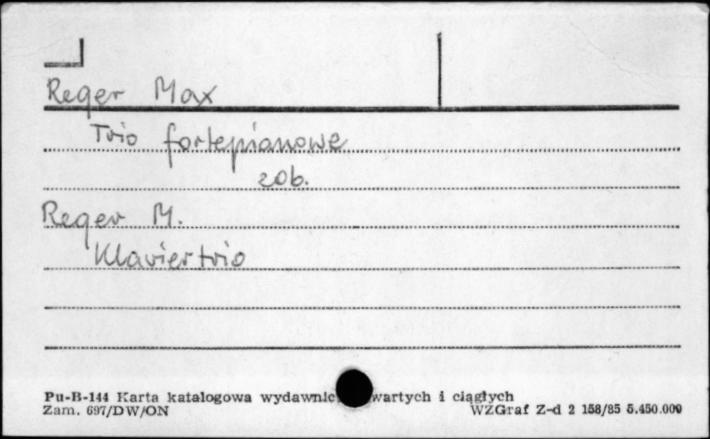 Reger Max
Trio fortepianowe
zob.
Reger M.
Klaviertrio
Pu-B-144 Karta katalogowa wydawnic wartych i ciągłych
Zam. 697/DW/ON WZGraf Z-d 2 158/85 5.450.000